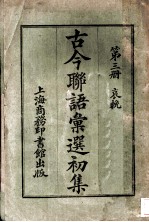 第三冊 哀輓
古今聯語彙選初集
上海商務印書館出版